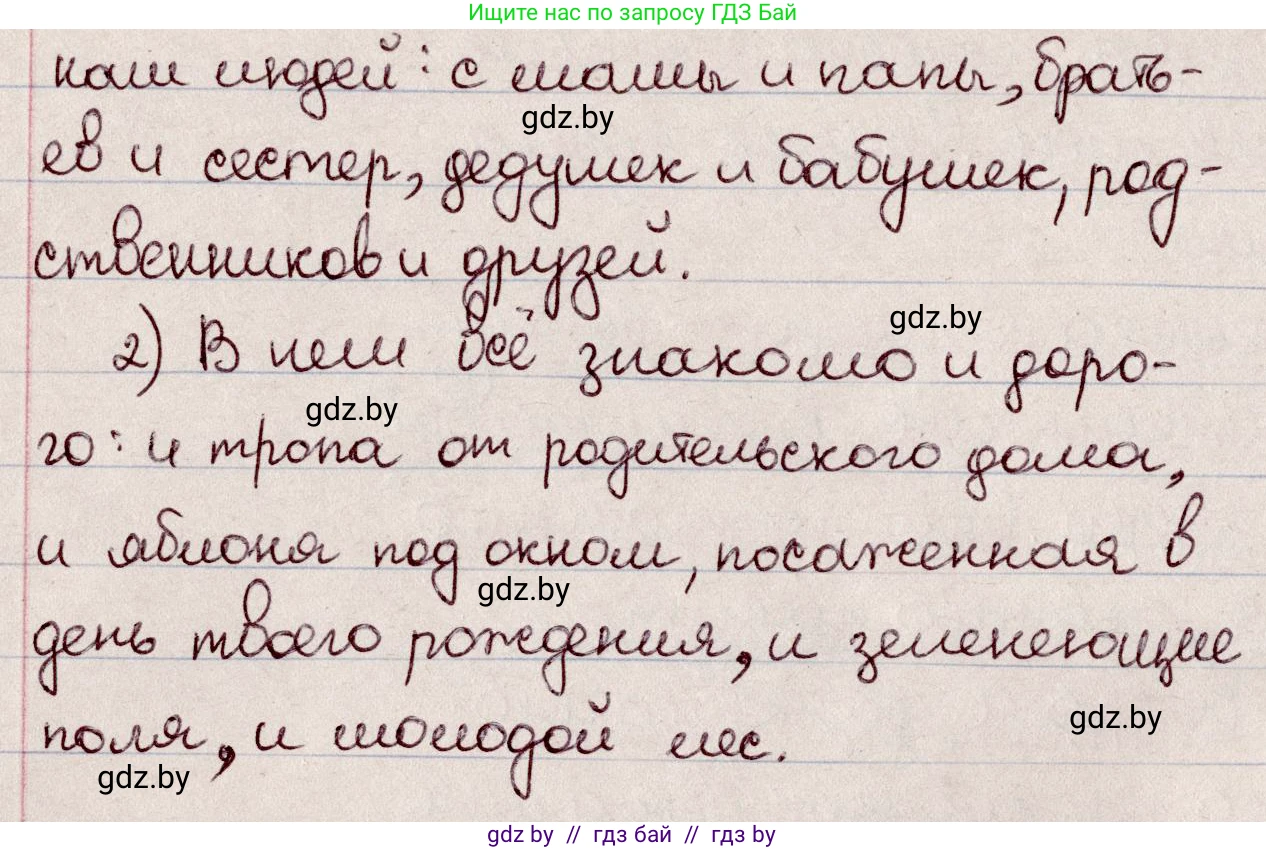 Ищите нас по запросу ГДЗ Бай
нам людей: с мамы и папы, брать-
gdz.by
ев и сестер, дедушек и бабушек, род-
ственников и друзей.
gdz.by
2) В нем всё знакомо и доро-
gdz.by
го: и тропа от родительского дома,
и яблоня под окном, посаженная в
gdz.by
день твоего рождения, и зеленеющие
gdz.by
поля, и молодой лес.
gdz.by
gdz by // гдз бай // гдз by